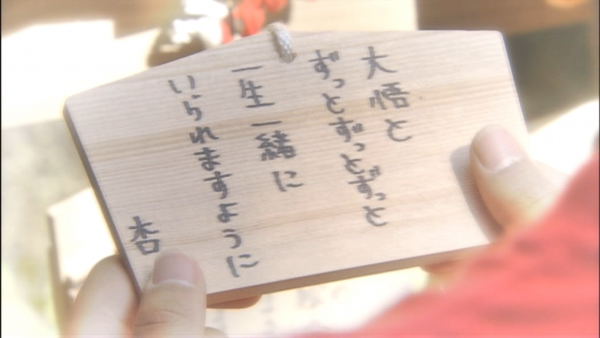 大悟と
ずっとずっとずっと
一生一緒に
いられますように
杏